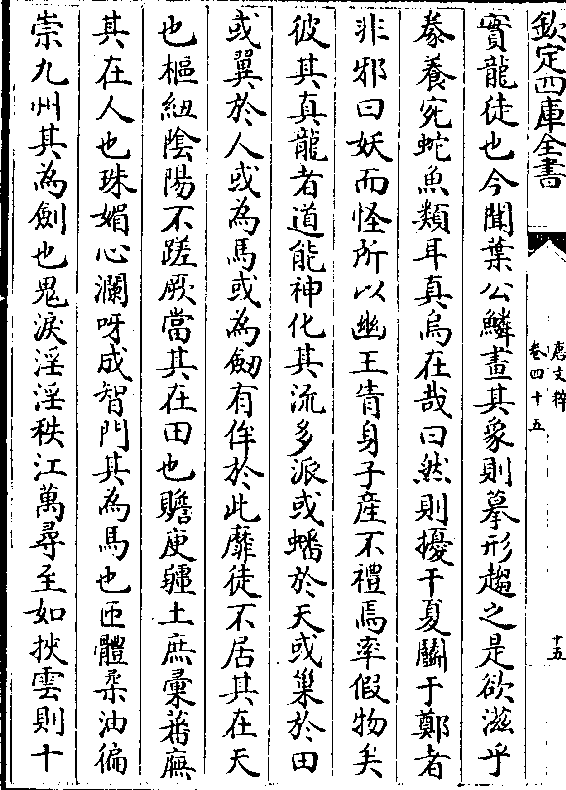 欽定四庫全書
唐文粹
卷四十五
十五
實龍徒也今聞葉公鱗畫其象則摹形趨之是欲滋乎
豢養宛蛇魚類耳真烏在哉曰然則擾于夏鬭于鄭者
非邪曰妖而怪所以幽王眚身子産不禮焉率假物矣
彼其真龍者道能神化其流多派或蟠於天或巢於田
或翼於人或為馬或為劒有侔於此靡徒不居其在天
也樞紐陰陽不蹉厥當其在田也贍庾疆土庶彚蕃廡
其在人也珠媚心瀾呀成智門其為馬也匝體桑油徧
崇九州其為劒也鬼淚淫淫秩江萬尋至如挾雲則十